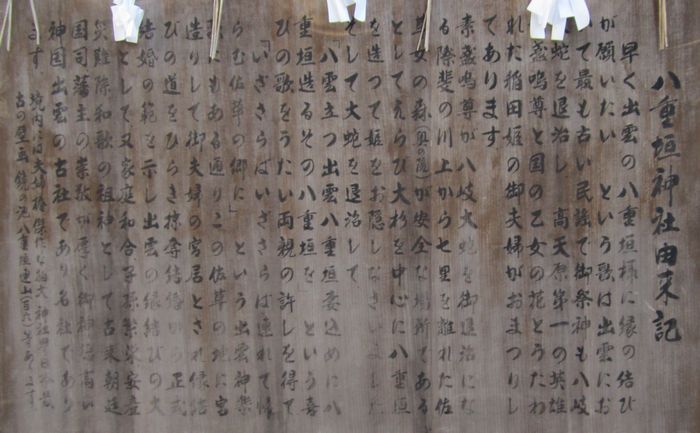 八重垣神社由来記
早く出雲の八重垣様に縁の結び
が願いたい という歌は出雲にお
いて最も古い民謡で御祭神も八岐
大蛇を退治し 高天原第一の英雄
素盞嗚尊と国の乙女の花とうたわ
れた稲田姫の御夫婦がおまつりし
てあります
素盞嗚尊が八岐大蛇を御退治にな
る際斐の川上から七里を離れた佐
草女の森奥の院が安全な場所である
としてえらび大杉を中心に八重垣
を造って姫をお隠しなさいました
そして大蛇を退治して
「八雲立つ出雲八重垣妻込めに八
重垣造るその八重垣を という喜
びの歌をうたい両親の許しを得て
「いざさらばいざさらば連れて帰
らむ佐草の郷に」 という出雲神楽
にもある通りこの佐草の地に宮
造りして御夫婦の宮居とされ縁結
びの道をひらき掠奪結婚から正式
結婚の範を示し出雲の縁結びの大
として又家庭和合子孫繁栄安産
災難除和歌の祖神として古来朝廷
国司藩主の崇敬が厚く御神徳高い
神国出雲の古社であり名社であり
ます
境内には夫婦椿
古の壁画 鏡の池 八重垣連山 等あります